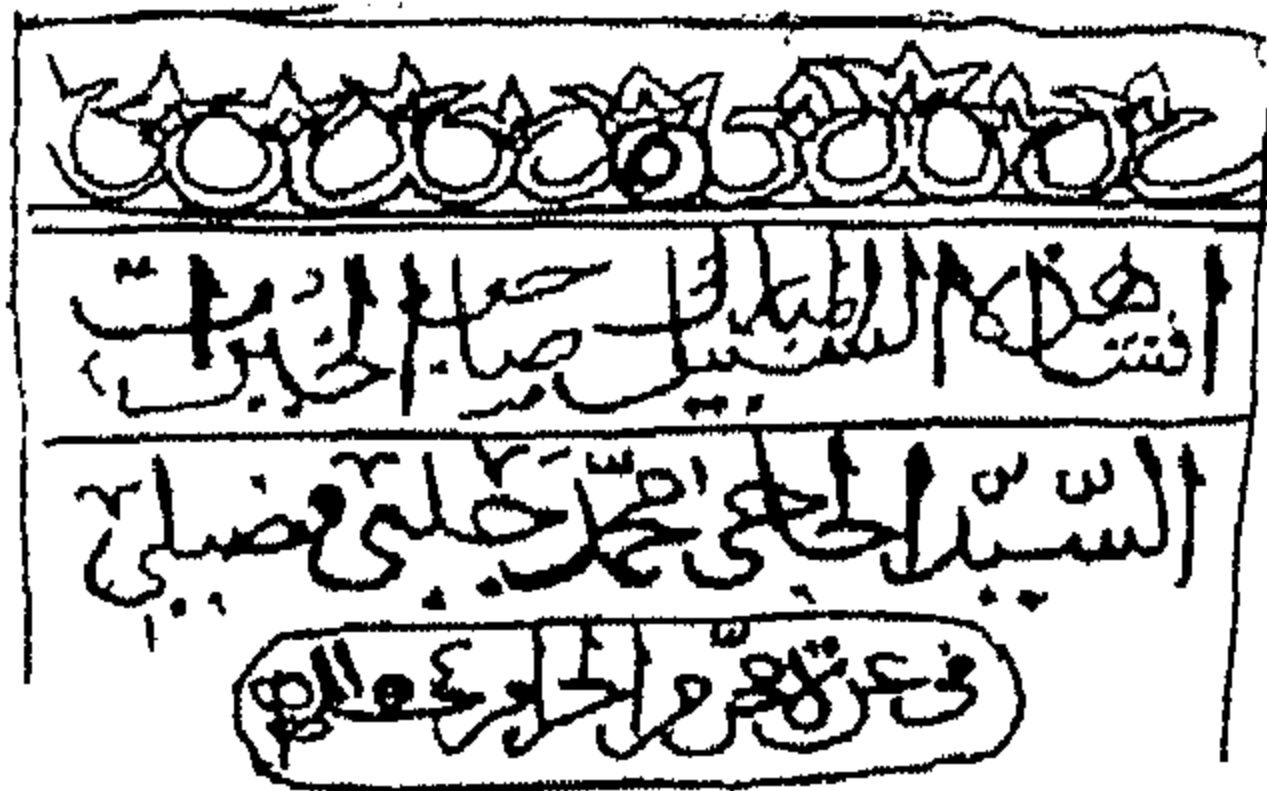 انشا هذا السبيل المبارك صاحب الخيرات
السيد الحاجي محمد جلبي فيضيلي
في غرة محرم الحرام